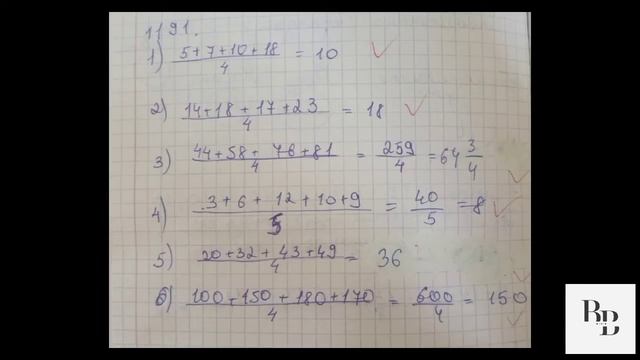 1191.
1) (5+7+10+18)/4 = 10
2) (14+18+17+23)/4 = 18
3) (44+58+76+81)/4 = 259/4 = 64 3/4
4) (3+6+12+10+9)/5 = 40/5 = 8
5) (20+32+43+49)/4 = 36
6) (100+150+180+170)/4 = 600/4 = 150